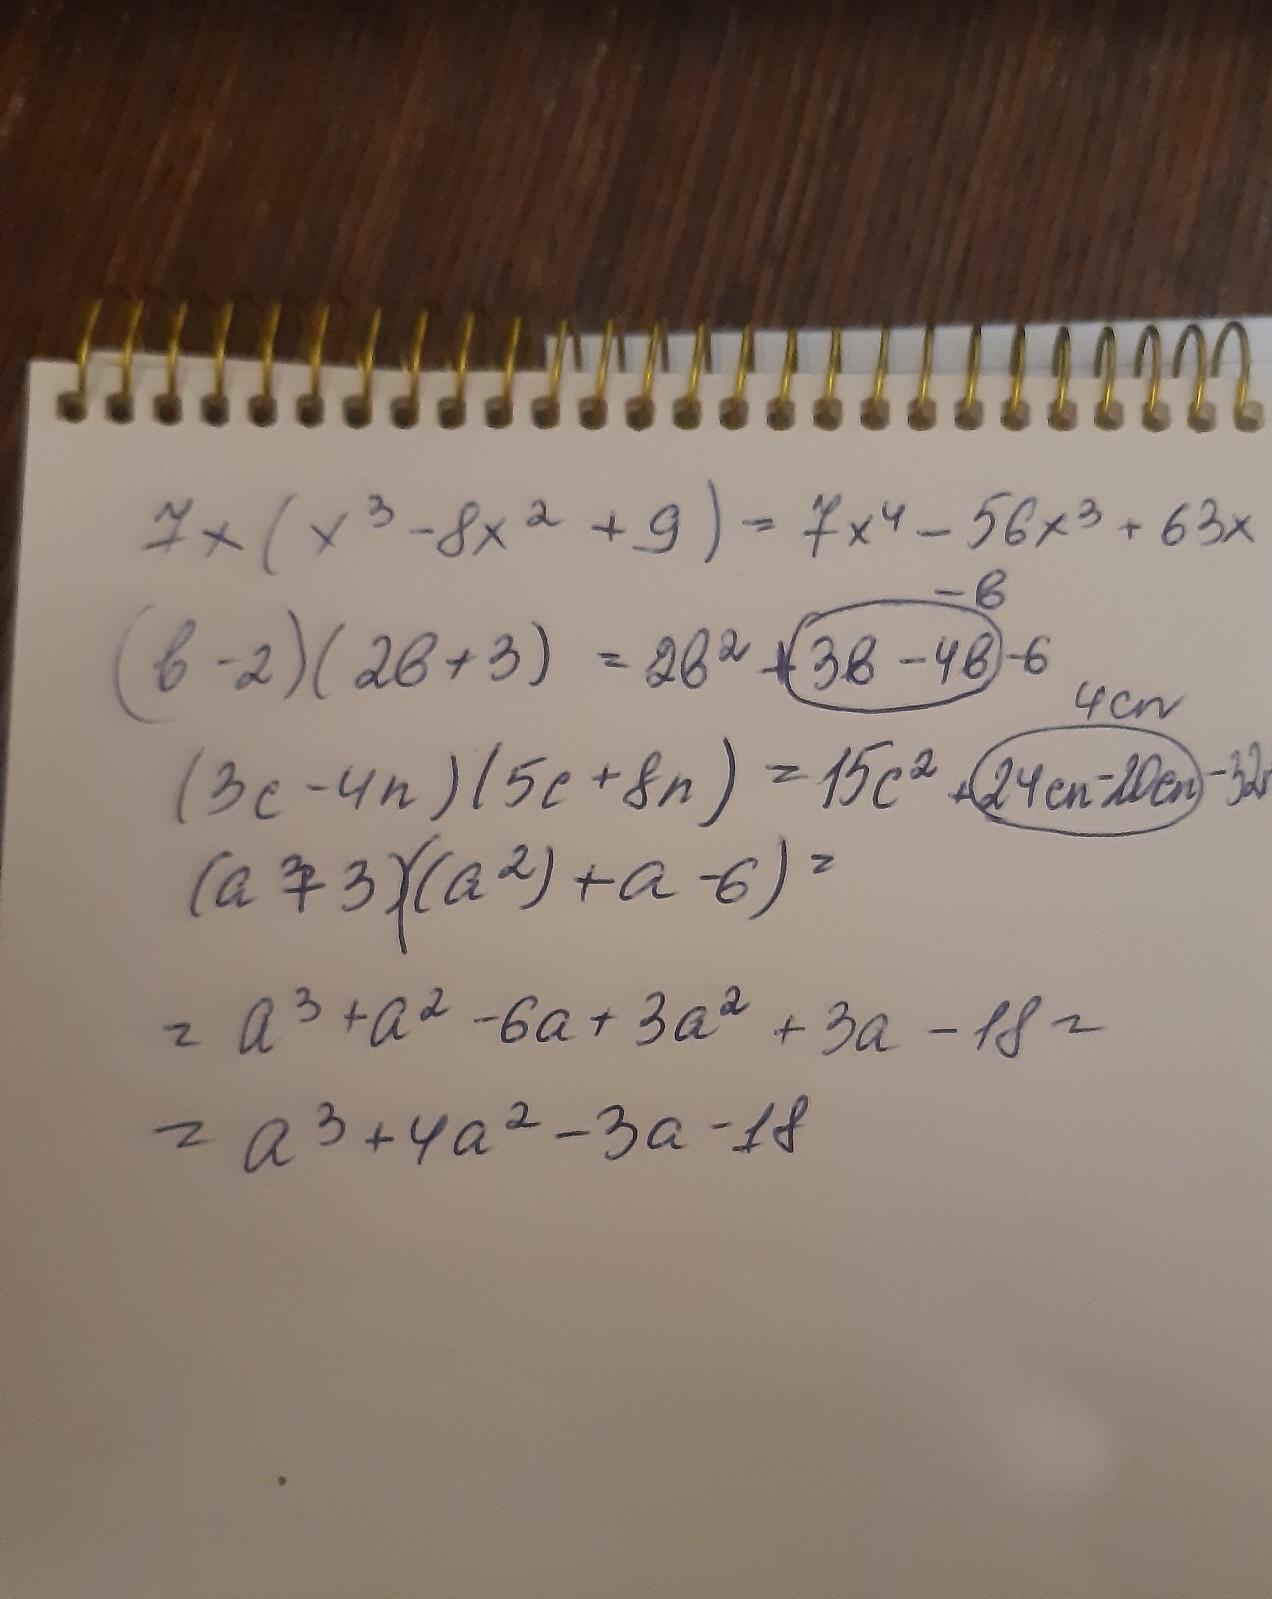 7x(x³-8x²+9)=7x⁴-56x³+63x
-в
(в-2)(2в+3)=2в²+3в-4в-6
4cn
(3c-4n)(5c+8n)=15c²+24cn-20cn-32n
(a+3)(a²)+a-6)=
=a³+a²-6a+3a²+3a-18=
=a³+4a²-3a-18